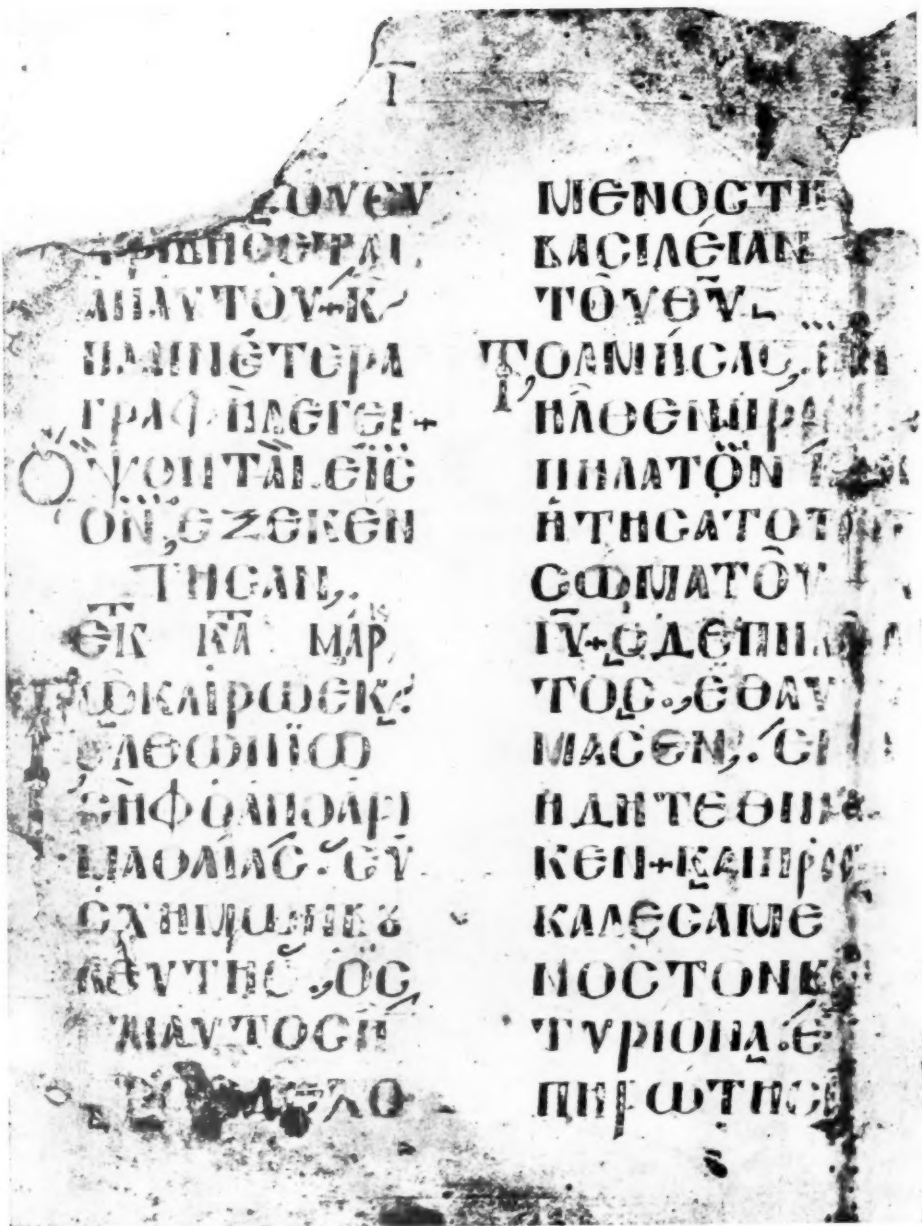 Γ
ΟΥ ΕΝ
ΤΡΙΒΗΣΕΤΑΙ
ΑΠΑΥΤΟΥ+Κ
ΠΑΛΙΝ ΕΤΕΡΑ
ΓΡΑΦΗ ΛΕΓΕΙ+
ΟΨΟΝΤΑΙ ΕΙC
ΟΝ ΕΞΕΚΕΝ
ΤΗCΑΝ
ΕΚ ΚΤΑ ΜΑΡ
ΤΩ ΚΑΙΡΩ ΕΚ
ΕΛΘΩΝ ΙΩ
CΗΦ Ο ΑΠΟ ΑΡΙ
ΜΑΘΑΙΑC ΕΥ
CΧΗΜΩΝ Κ
ΛΕΥΤΗC ΟC
ΑΙ ΑΥΤΟC Η
ΔΕΧΟ
ΜΕΝΟC ΤΗ
ΒΑCΙΛΕΙΑΝ
ΤΟΥ ΘΥ
ΤΟΛΜΗCΑC
ΗΛΘΕΝ ΠΡ
ΠΗΛΑΤΟΝ
ΗΤΗCΑΤΟ ΤΟ
CΩΜΑ ΤΟΥ
ΙΥ+Ο ΔΕ ΠΗΛΑ
ΤΟC ΕΘΑΥ
ΜΑCΕΝ ΕΙ
ΗΔΗ ΤΕΘΝΗ
ΚΕΝ+ΚΑΙ ΠΡΟC
ΚΑΛΕCΑΜΕ
ΝΟC ΤΟΝ ΚΕ
ΤΥΡΙΟΝΑ Ε
ΠΗΡΩΤΗCΕ